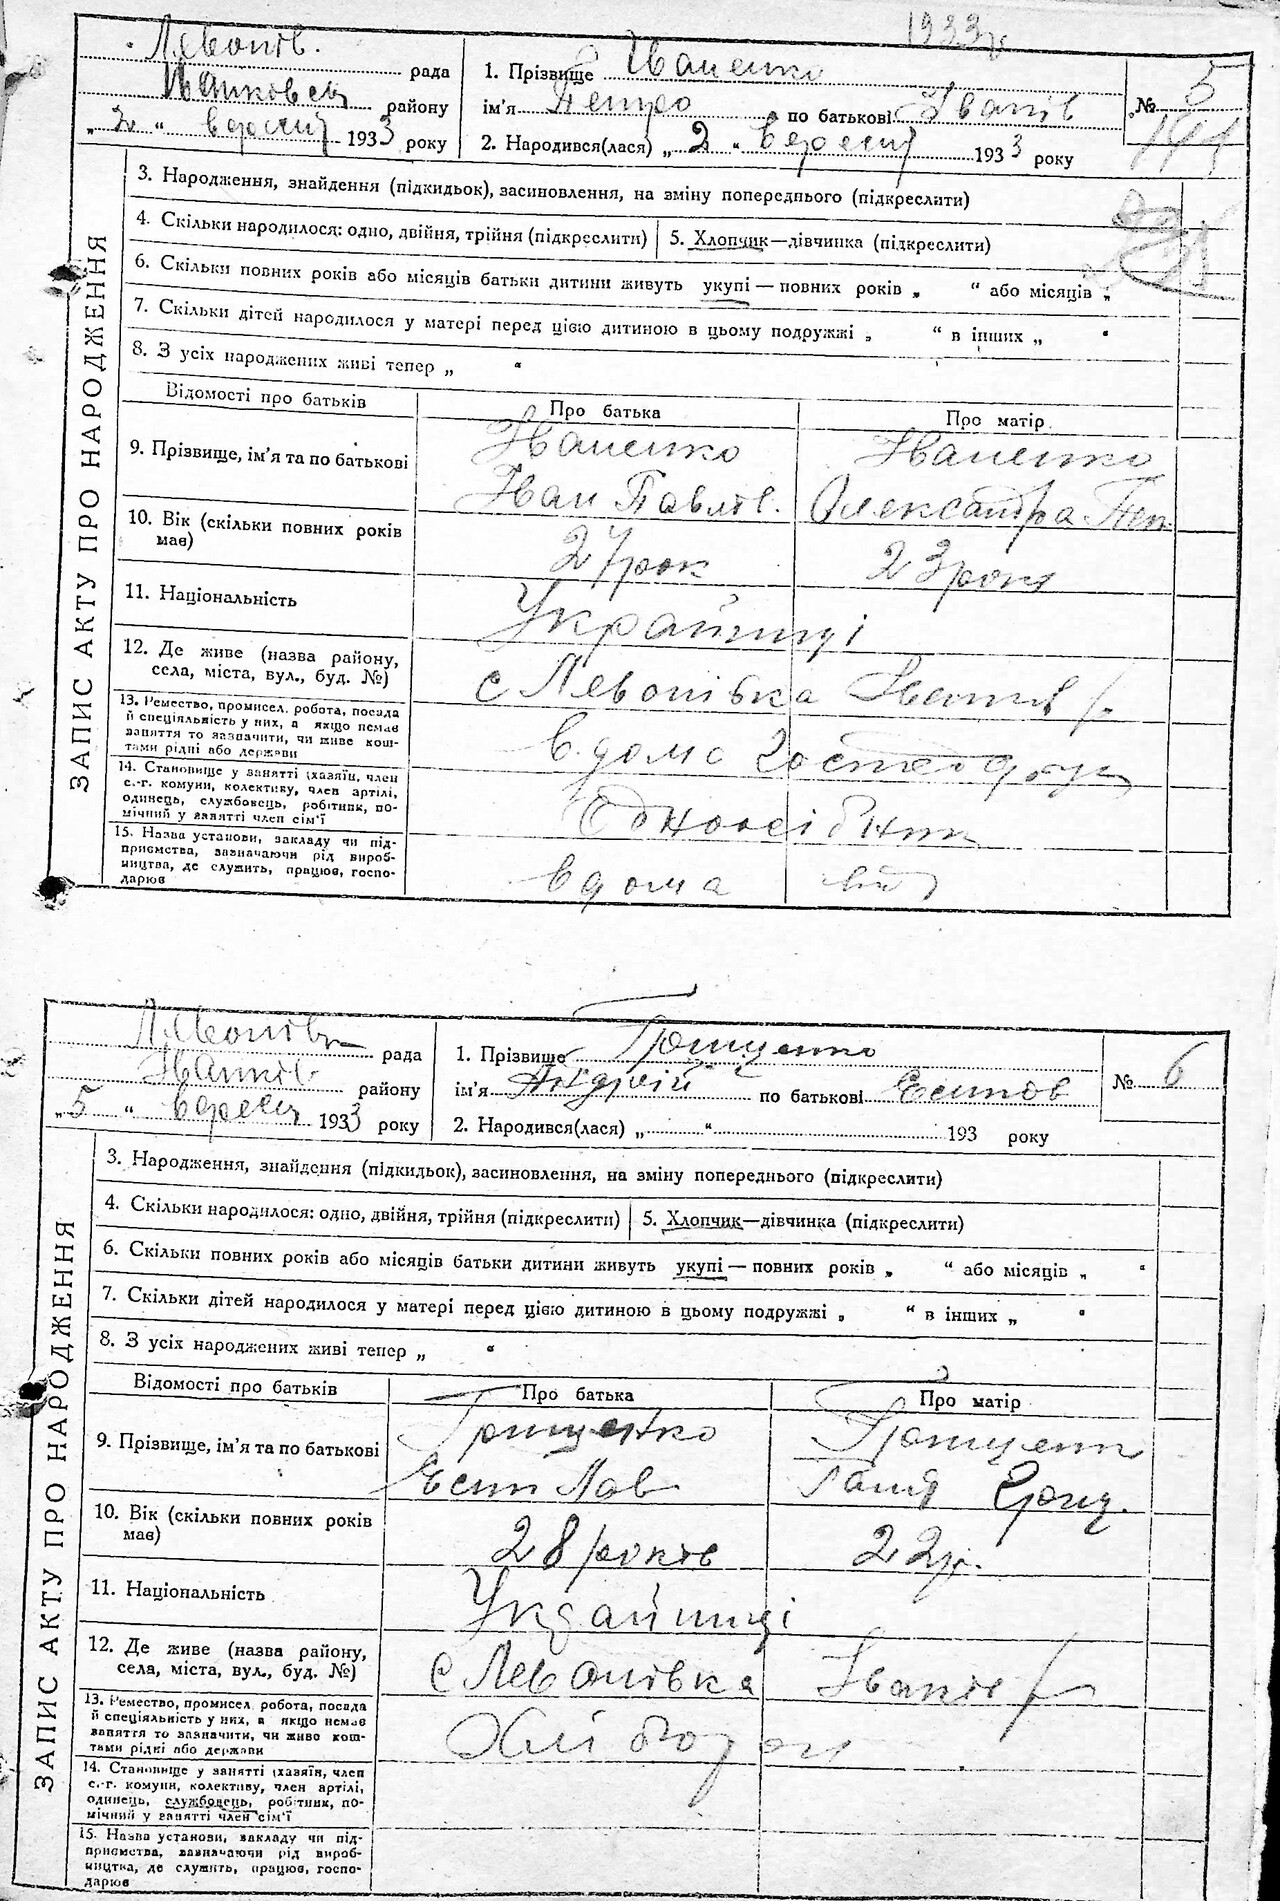 1933 р
Левонів.
рада
району
„ 2 “ вересня 1933 року
1. Прізвище Іваненко
ім'я Петро по батькові Іванів
2. Народився(лася) „ 2 “ вересня 1933 року
№ 5
ЗАПИС АКТУ ПРО НАРОДЖЕННЯ
3. Народження, знайдення (підкидьок), засиновлення, на зміну попереднього (підкреслити)
4. Скільки народилося: одно, двійня, трійня (підкреслити) 5. Хлопчик—дівчинка (підкреслити)
6. Скільки повних років або місяців батьки дитини живуть укупі — повних років „ “ або місяців „
7. Скільки дітей народилося у матері перед цією дитиною в цьому подружжі „ “ в інших „ “
8. З усіх народжених живі тепер „ “
Відомості про батьків Про батька Про матір
9. Прізвище, ім'я та по батькові Іваненко Іваненко
Іван Павлів. Олександра
10. Вік (скільки повних років має) 27 рок 23 роки
11. Національність Українці
12. Де живе (назва району, села, міста, вул., буд. №) с Левонівка
13. Ремество, промисел, робота, посада й спеціяльність у них, а якщо немає заняття то зазначити, чи живе коштами рідні або держави в дома
14. Становище у занятті (хазяїн, член с.-г. комуни, колективу, член артілі, одинець, службовець, робітник, помічний у занятті член сім'ї Одноосібник
15. Назва установи, закладу чи підприємства, зазначаючи рід виробництва, де служить, працює, господарює вдома
рада
району
„ 5 “ вересня 1933 року
1. Прізвище Грищенко
ім'я Андрій по батькові Есипов
2. Народився(лася) „ “ 193 року
№ 6
ЗАПИС АКТУ ПРО НАРОДЖЕННЯ
3. Народження, знайдення (підкидьок), засиновлення, на зміну попереднього (підкреслити)
4. Скільки народилося: одно, двійня, трійня (підкреслити) 5. Хлопчик—дівчинка (підкреслити)
6. Скільки повних років або місяців батьки дитини живуть укупі — повних років „ “ або місяців „ “
7. Скільки дітей народилося у матері перед цією дитиною в цьому подружжі „ “ в інших „ “
8. З усіх народжених живі тепер „ “
Відомості про батьків Про батька Про матір
9. Прізвище, ім'я та по батькові Грищенко Грищенк
Есип Лав
10. Вік (скільки повних років має) 28 років 22 р.
11. Національність Українці
12. Де живе (назва району, села, міста, вул., буд. №) с Левонівка Іванків
13. Ремество, промисел, робота, посада й спеціяльність у них, а якщо немає заняття то зазначити, чи живе коштами рідні або держави Хлібороби
14. Становище у занятті (хазяїн, член с.-г. комуни, колективу, член артілі, одинець, службовець, робітник, помічний у занятті член сім'ї
15. Назва установи, закладу чи підприємства, зазначаючи рід виробництва, де служить, працює, господарює